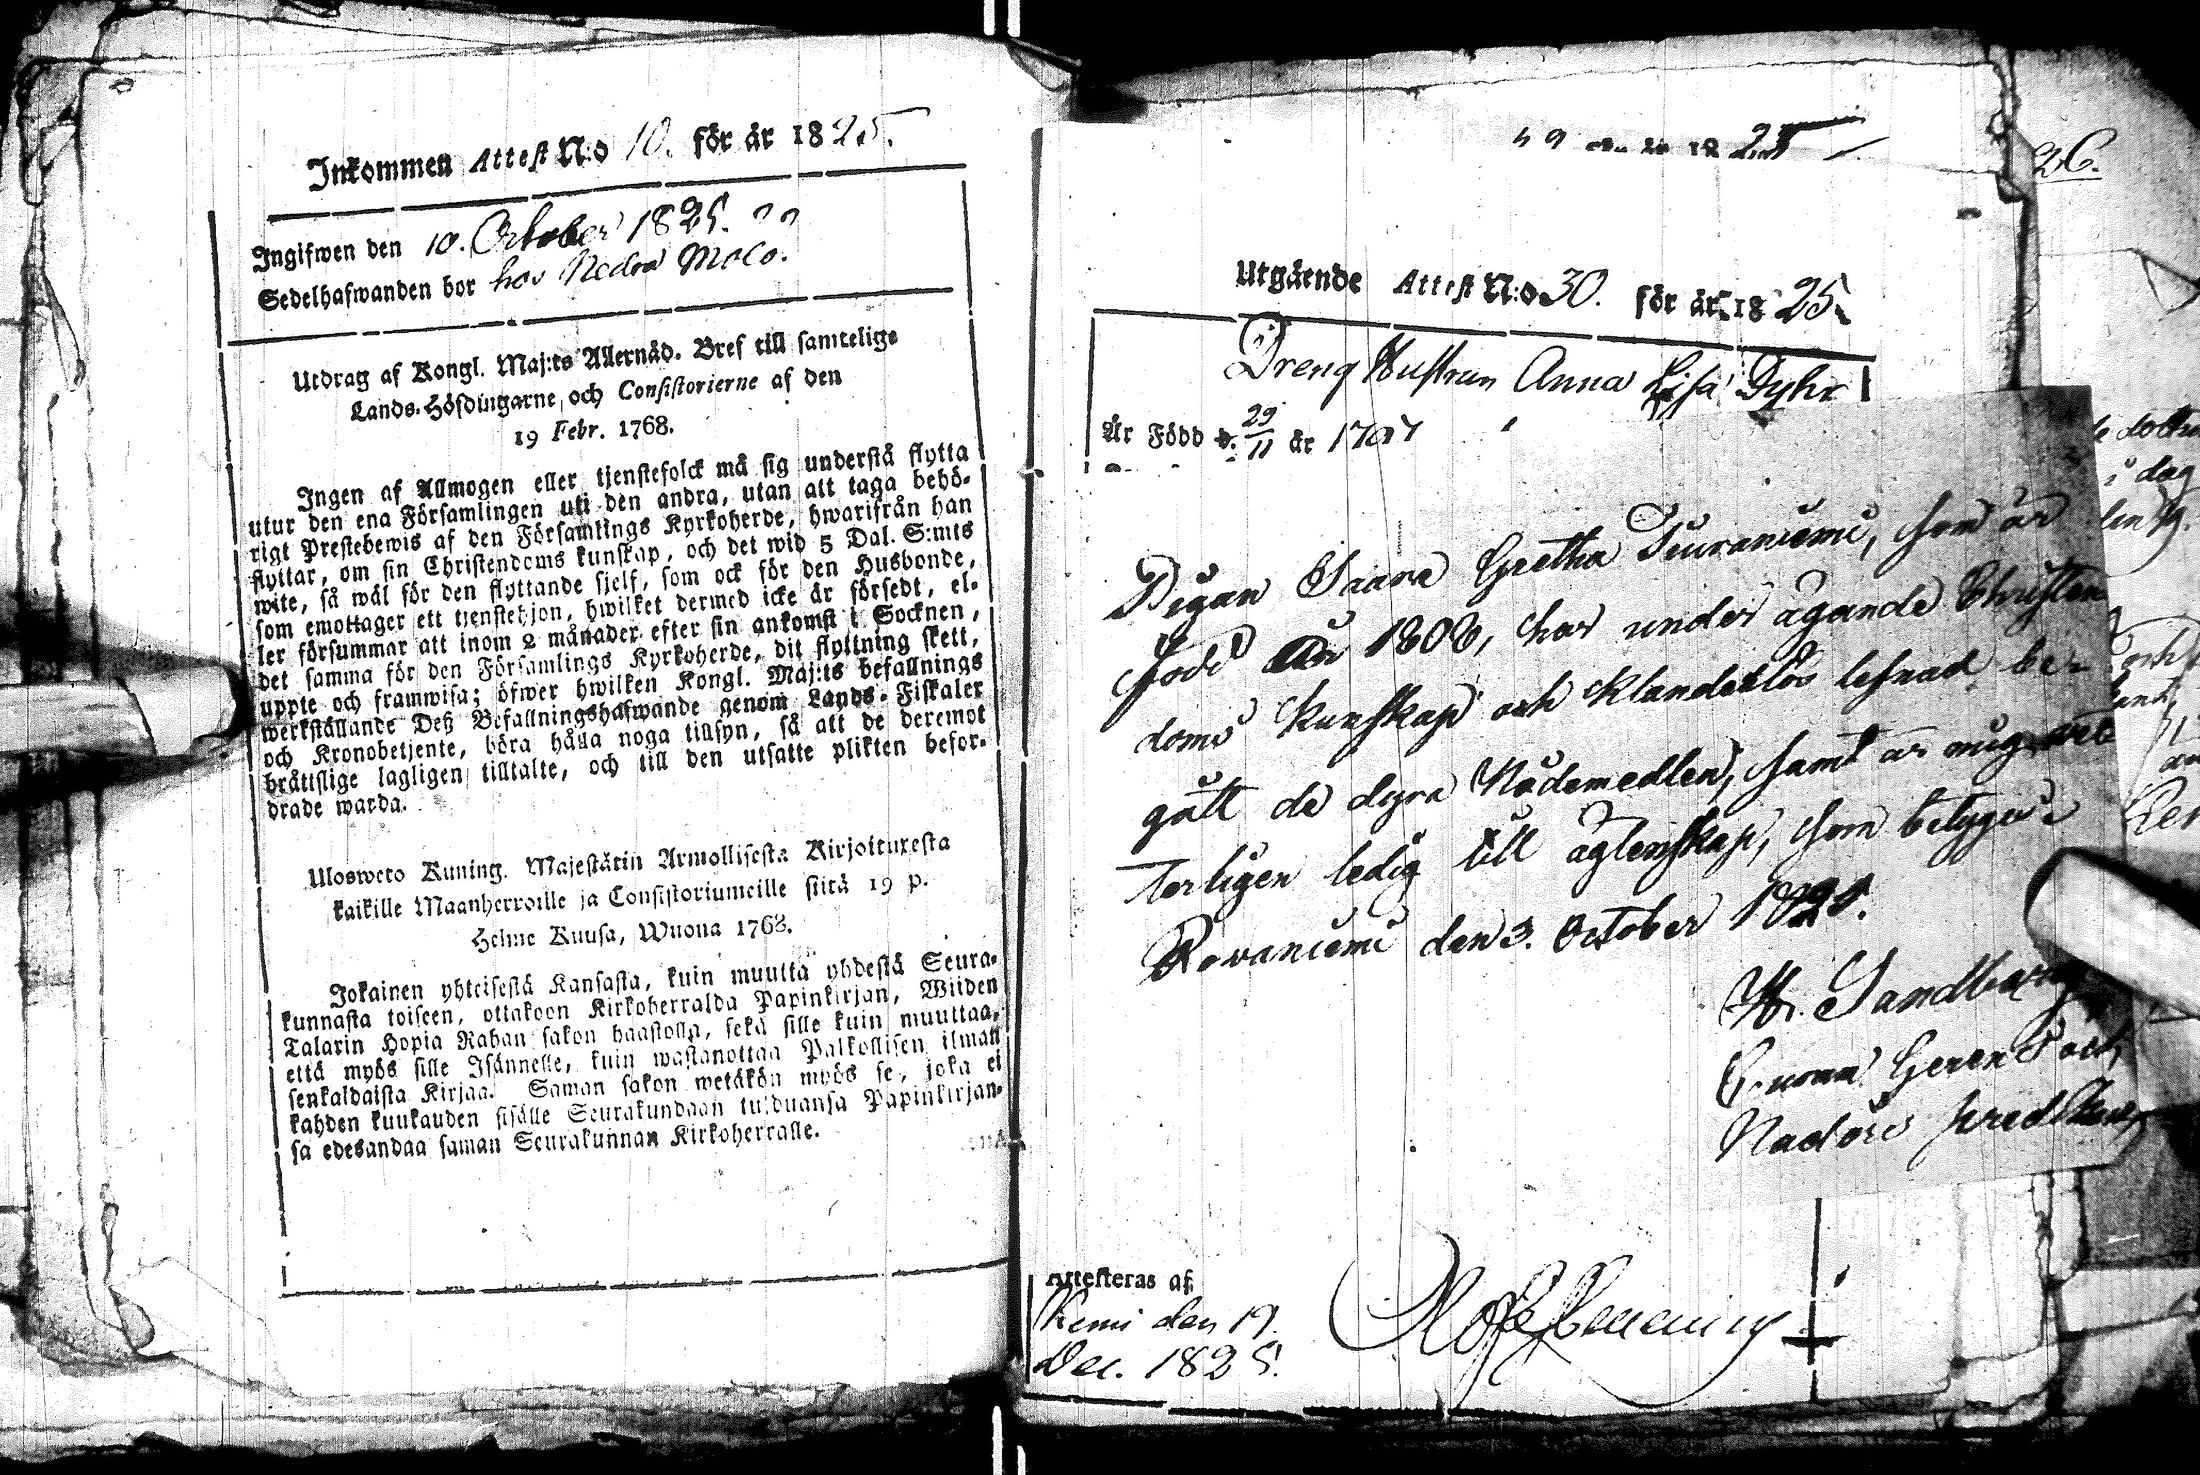 Inkommen Attest N:o 10. för år 1825.
Ingifwen den 10. October 1825.
Sedelhafwanden bor hos Nedra
Utdrag af Kongl. Maj:ts Allernåd. Bref till samtelige
Lands-Höfdingarne, och Consistorierne af den
19 Febr. 1768.
Ingen af Allmogen eller tjenstefolck må sig understå flytta
utur den ena Församlingen uti den andra, utan att taga behö-
rigt Prestebewis af den Församlings Kyrkoherde, hwarifrån han
flyttar, om sin Christendoms kunskap, och det wid 5 Dal. S:mts
wite, så wäl för den flyttande sjelf, som ock för den Husbonde,
som emottager ett tjenstehjon, hwilket dermed icke är försedt, el-
ler försummar att inom 2 månader efter sin ankomst i Socknen,
det samma för den Församlings Kyrkoherde, dit flyttning skett,
uppte och framwisa; öfwer hwilken Kongl. Maj:ts befallnings
werkställande Deß Befallningshafwande genom Lands-Fiskaler
och Kronobetjente, böra hålla noga tillsyn, så att de deremot
bråttslige lagligen tilltalte, och till den utsatte plikten befor-
drade warda.
Ulosweto Kuning. Majestätin Armollisesta Kirjoituxesta
kaikille Maanherroille ja Consistoriumeille siitä 19 p.
Helme Kuusa, Wuona 1768.
Jokainen yhteisestä Kansasta, kuin muutta yhdestä Seura-
kunnasta toiseen, ottakoon Kirkoherralda Papinkirjan, Wiiden
Talarin Hopia Rahan sakon haastolla, sekä sille kuin muuttaa,
että myös sille Isännelle, kuin wastanottaa Palkollisen ilman
senkaldaista Kirjaa. Saman sakon wetäkön myös se, joka ei
kahden kuukauden sisälle Seurakundaan tulduansa Papinkirjan-
sa edesandaa saman Seurakunnan Kirkoherralle.
25
26.
Utgående Attest N:o 30. för år 1825.
Dreng Hustrun Anna Lisa Dyhr
Är Född d. 29/11 år 1797
Pigan Saara Gretha Siuraniemi, som är
född år 1808, har under ägande Christen
doms kunskap och klanderlös lefnad be-
gått de dyra Nådemedlen, samt är mig wet
terligen ledig till ägtenskap, som betygas
Rovaniemi den 3. October 1825.
Sandberg
Attesteras af
Kemi den 19.
Dec. 1825.